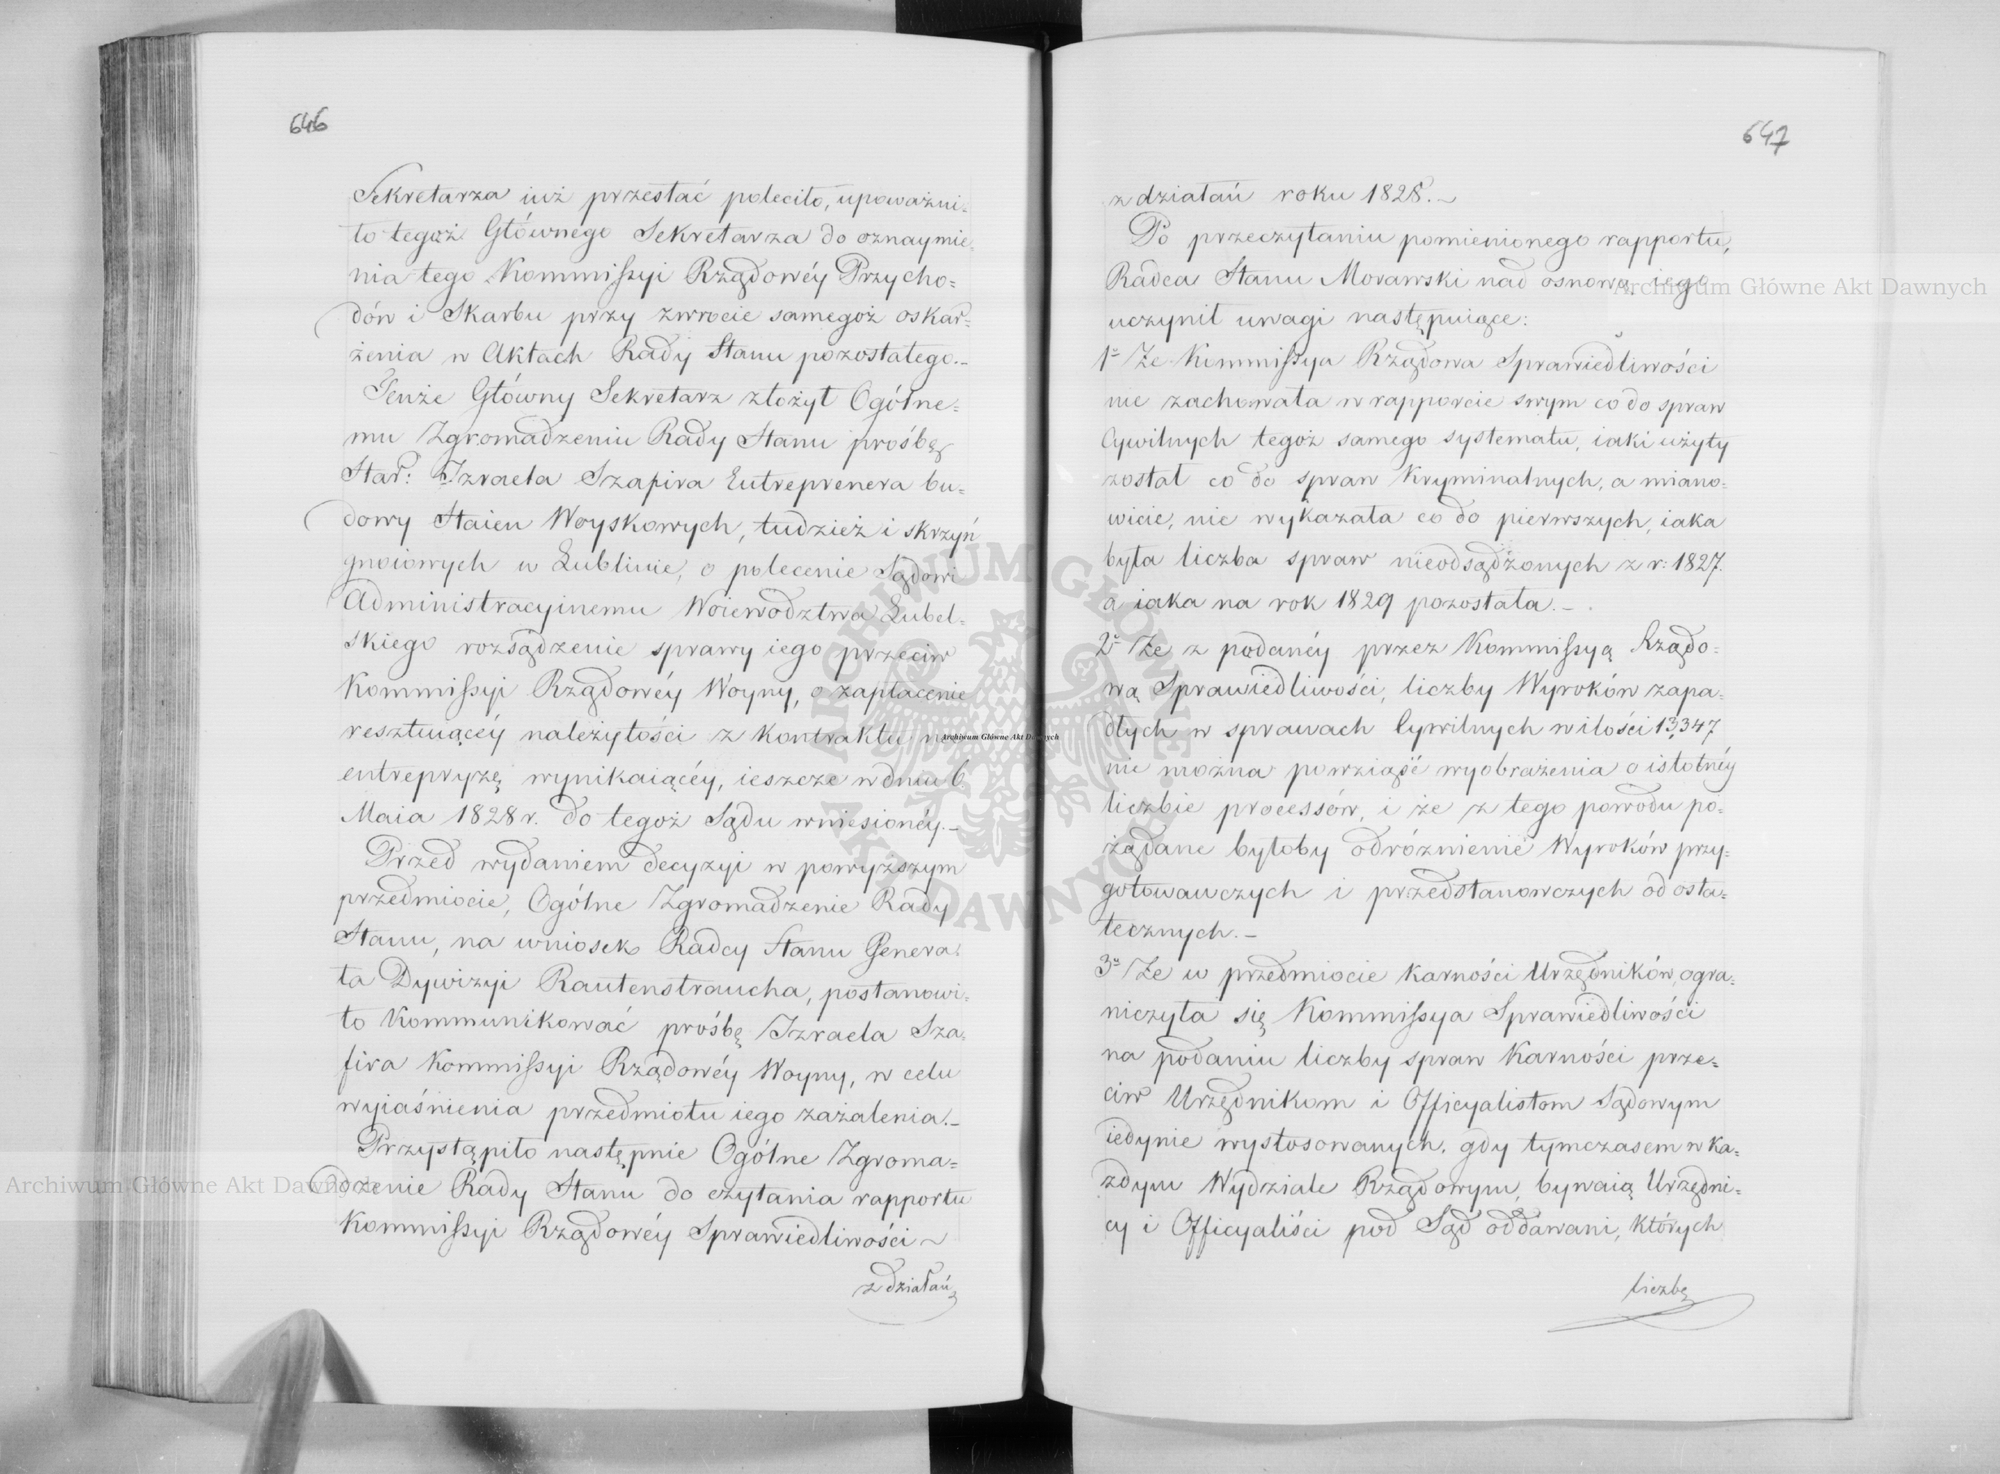 646
Sekretarza iuż przesłać poleciło, upoważni-
ło tegoż Głównego Sekretarza do oznaymie-
nia tego Kommissyi Rządowéy Przycho-
dów i Skarbu przy zwrocie samegoż oskar-
żenia w Aktach Rady Stanu pozostałego.-
Tenże Główny Sekretarz złożył Ogólne-
mu Zgromadzeniu Rady Stanu prośbę
Star: Izraela Szafira Entreprenera bu-
dowy Staien Woyskowych, tudzież i skrzyń
gnoiowych w Lublinie, o polecenie Sądowi
Administracyinemu Woiewództwa Lubel-
skiego rozsądzenie sprawy iego przeciw
Kommissyi Rządowéy Woyny, o zapłacenie
resztuiącéy należytości z kontraktu na
entrepryzę wynikaiącéy, ieszcze w dniu 6
Maia 1828 r. do tegoż Sądu wniesionéy.-
Przed wydaniem decyzyi w powyższym
przedmiocie, Ogólne Zgromadzenie Rady
Stanu, na wniosek Radcy Stanu Genera-
ła Dywizyi Rautenstraucha, postanowi-
ło kommunikować prośbę Izraela Sza-
fira Kommissyi Rządowéy Woyny, w celu
wyiaśnienia przedmiotu iego zażalenia.-
Przystąpiło następnie Ogólne Zgroma-
dzenie Rady Stanu do czytania rapportu
Kommissyi Rządowéy Sprawiedliwości
z działań
647
z działań roku 1828.-
Po przeczytaniu pomienionego rapportu,
Radca Stanu Morawski nad osnową iego
uczynił uwagi następuiące:
1° Że Kommissya Rządowa Sprawiedliwości
nie zachowała w rapporcie swym co do spraw
Cywilnych tegoż samego systematu, iaki użyty
został co do spraw Kryminalnych, a miano-
wicie, nie wykazała co do pierwszych, iaka
była liczba spraw nieodsądzonych z r: 1827.
a iaka na rok 1829 pozostała.-
2° Że z podanéy przez Kommissyą Rządo-
wą Sprawiedliwości, liczby Wyroków zapa-
dłych w sprawach Cywilnych w ilości 13,347
nie można powziąść wyobrażenia o istotnéy
liczbie processów, i że z tego powodu po-
żądane byłoby odróżnienie Wyroków przy-
gotowawczych i przedstanowczych od osta-
tecznych.-
3° Że w przedmiocie karności Urzędników, ogra-
niczyła się Kommissya Sprawiedliwości
na podaniu liczby spraw Karności prze-
ciw Urzędnikom i Officyalistom Sądowym
iedynie wystosowanych, gdy tymczasem w ka-
żdym Wydziale Rządowym, bywaią Urzędni-
cy i Officyaliści pod Sąd oddawani, których
liczbę
Archiwum Główne Akt Dawnych
Archiwum Główne Akt Dawnych
Archiwum Główne Akt Dawnych
ARCHIWUM GŁÓWNE AKT DAWNYCH